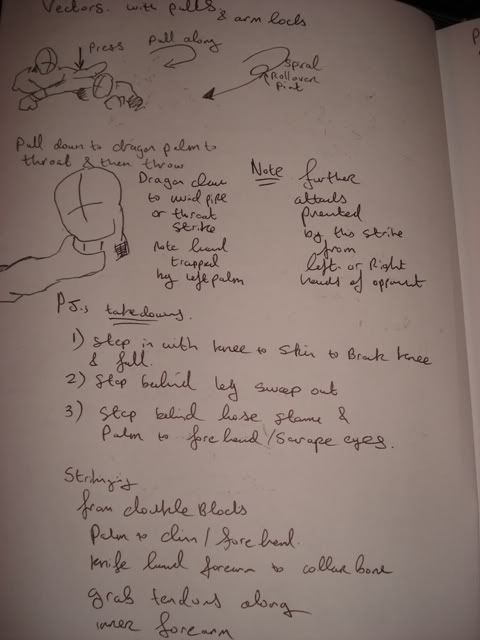 Vectors. with pulls & arm locks
Press
Pull along
Spiral
Rollover
Point
Pull down to dragon palm to
throat & then throw
Dragon claw
to wind pipe
or throat
strike
Note hand
trapped
by left palm
Note further
attacks
prevented
by this strike
from
left or Right
hands of opponent
PJ.s takedowns.
1) Step in with knee to shin to Break knee
& fall.
2) Step behind leg sweep out
3) Step behind horse stance &
Palm to forehead/Scrape eyes.
Striking
from double Blocks
Palm to chin / forehead.
knife hand forearm to collar bone
grab tendons along
inner forearm